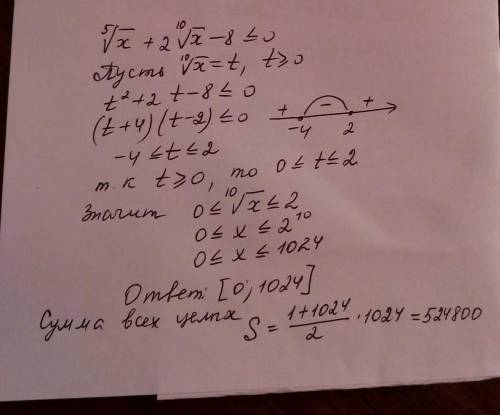 ⁵√x + 2 ¹⁰√x − 8 ≤ 0
Пусть ¹⁰√x = t, t ≥ 0
t² + 2 t − 8 ≤ 0
(t + 4) (t − 2) ≤ 0 + − +
−4 2
−4 ≤ t ≤ 2
т.к t ≥ 0, то 0 ≤ t ≤ 2
Значит 0 ≤ ¹⁰√x ≤ 2
0 ≤ x ≤ 2¹⁰
0 ≤ x ≤ 1024
Ответ: [0; 1024]
Сумма всех целых S = (1+1024)/2 · 1024 = 524800